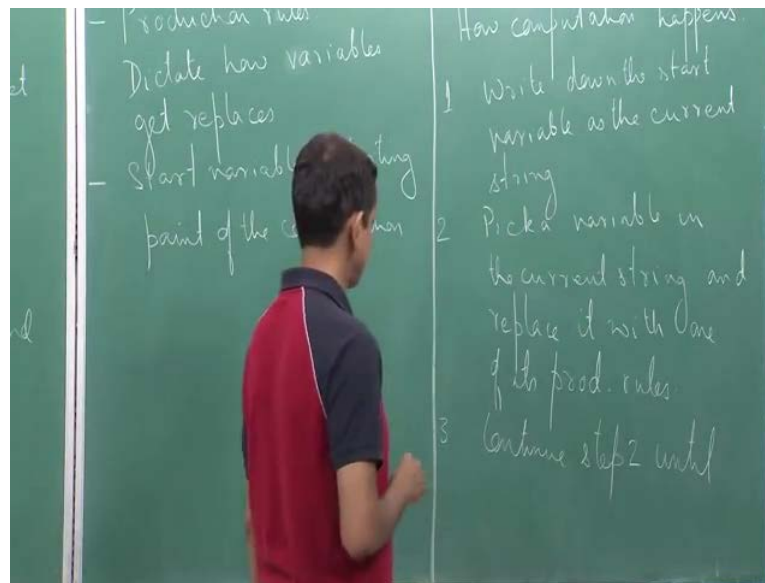 et
nd
- Production rules
Dictate how variables
get replaces
- Start variable ting
point of the c
How computation happens.
1 Write down the start
variable as the current
string
2 Pick a variable in
the current string and
replace it with one
of its prod. rules.
3 Continue step 2 until